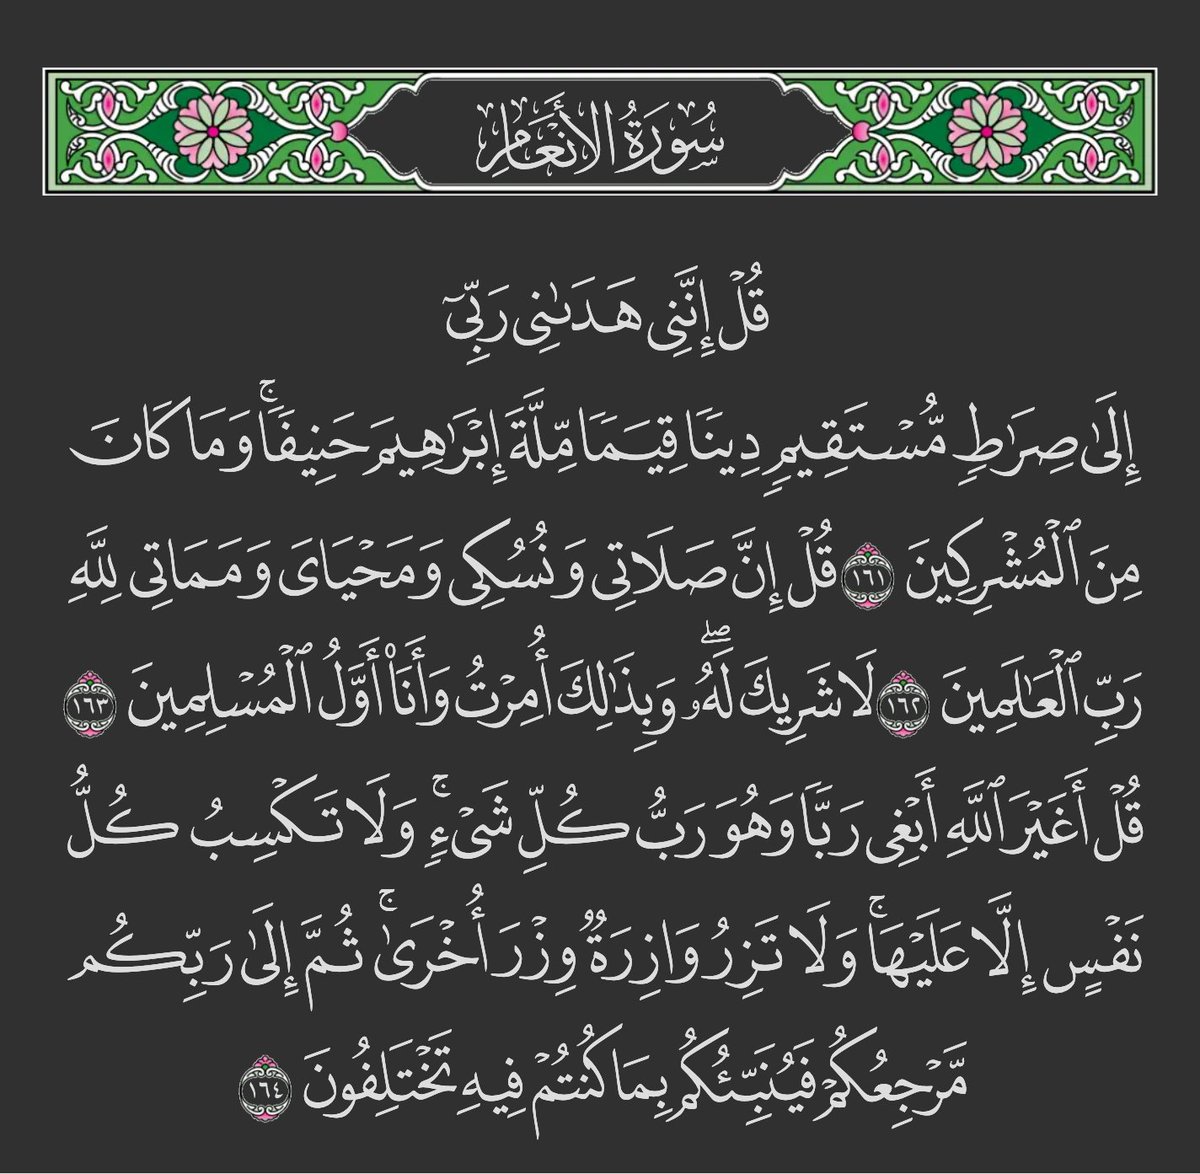 سُورَةُ الأَنْعَامِ
قُلْ إِنَّنِى هَدَىٰنِى رَبِّىٓ
إِلَىٰ صِرَٰطٍ مُّسْتَقِيمٍ دِينًا قِيَمًا مِّلَّةَ إِبْرَٰهِيمَ حَنِيفًا ۚ وَمَا كَانَ
مِنَ ٱلْمُشْرِكِينَ ١٦١ قُلْ إِنَّ صَلَاتِى وَنُسُكِى وَمَحْيَاىَ وَمَمَاتِى لِلَّهِ
رَبِّ ٱلْعَٰلَمِينَ ١٦٢ لَا شَرِيكَ لَهُۥ ۖ وَبِذَٰلِكَ أُمِرْتُ وَأَنَا۠ أَوَّلُ ٱلْمُسْلِمِينَ ١٦٣
قُلْ أَغَيْرَ ٱللَّهِ أَبْغِى رَبًّا وَهُوَ رَبُّ كُلِّ شَىْءٍ ۚ وَلَا تَكْسِبُ كُلُّ
نَفْسٍ إِلَّا عَلَيْهَا ۚ وَلَا تَزِرُ وَازِرَةٌ وِزْرَ أُخْرَىٰ ۚ ثُمَّ إِلَىٰ رَبِّكُم
مَّرْجِعُكُمْ فَيُنَبِّئُكُم بِمَا كُنتُمْ فِيهِ تَخْتَلِفُونَ ١٦٤